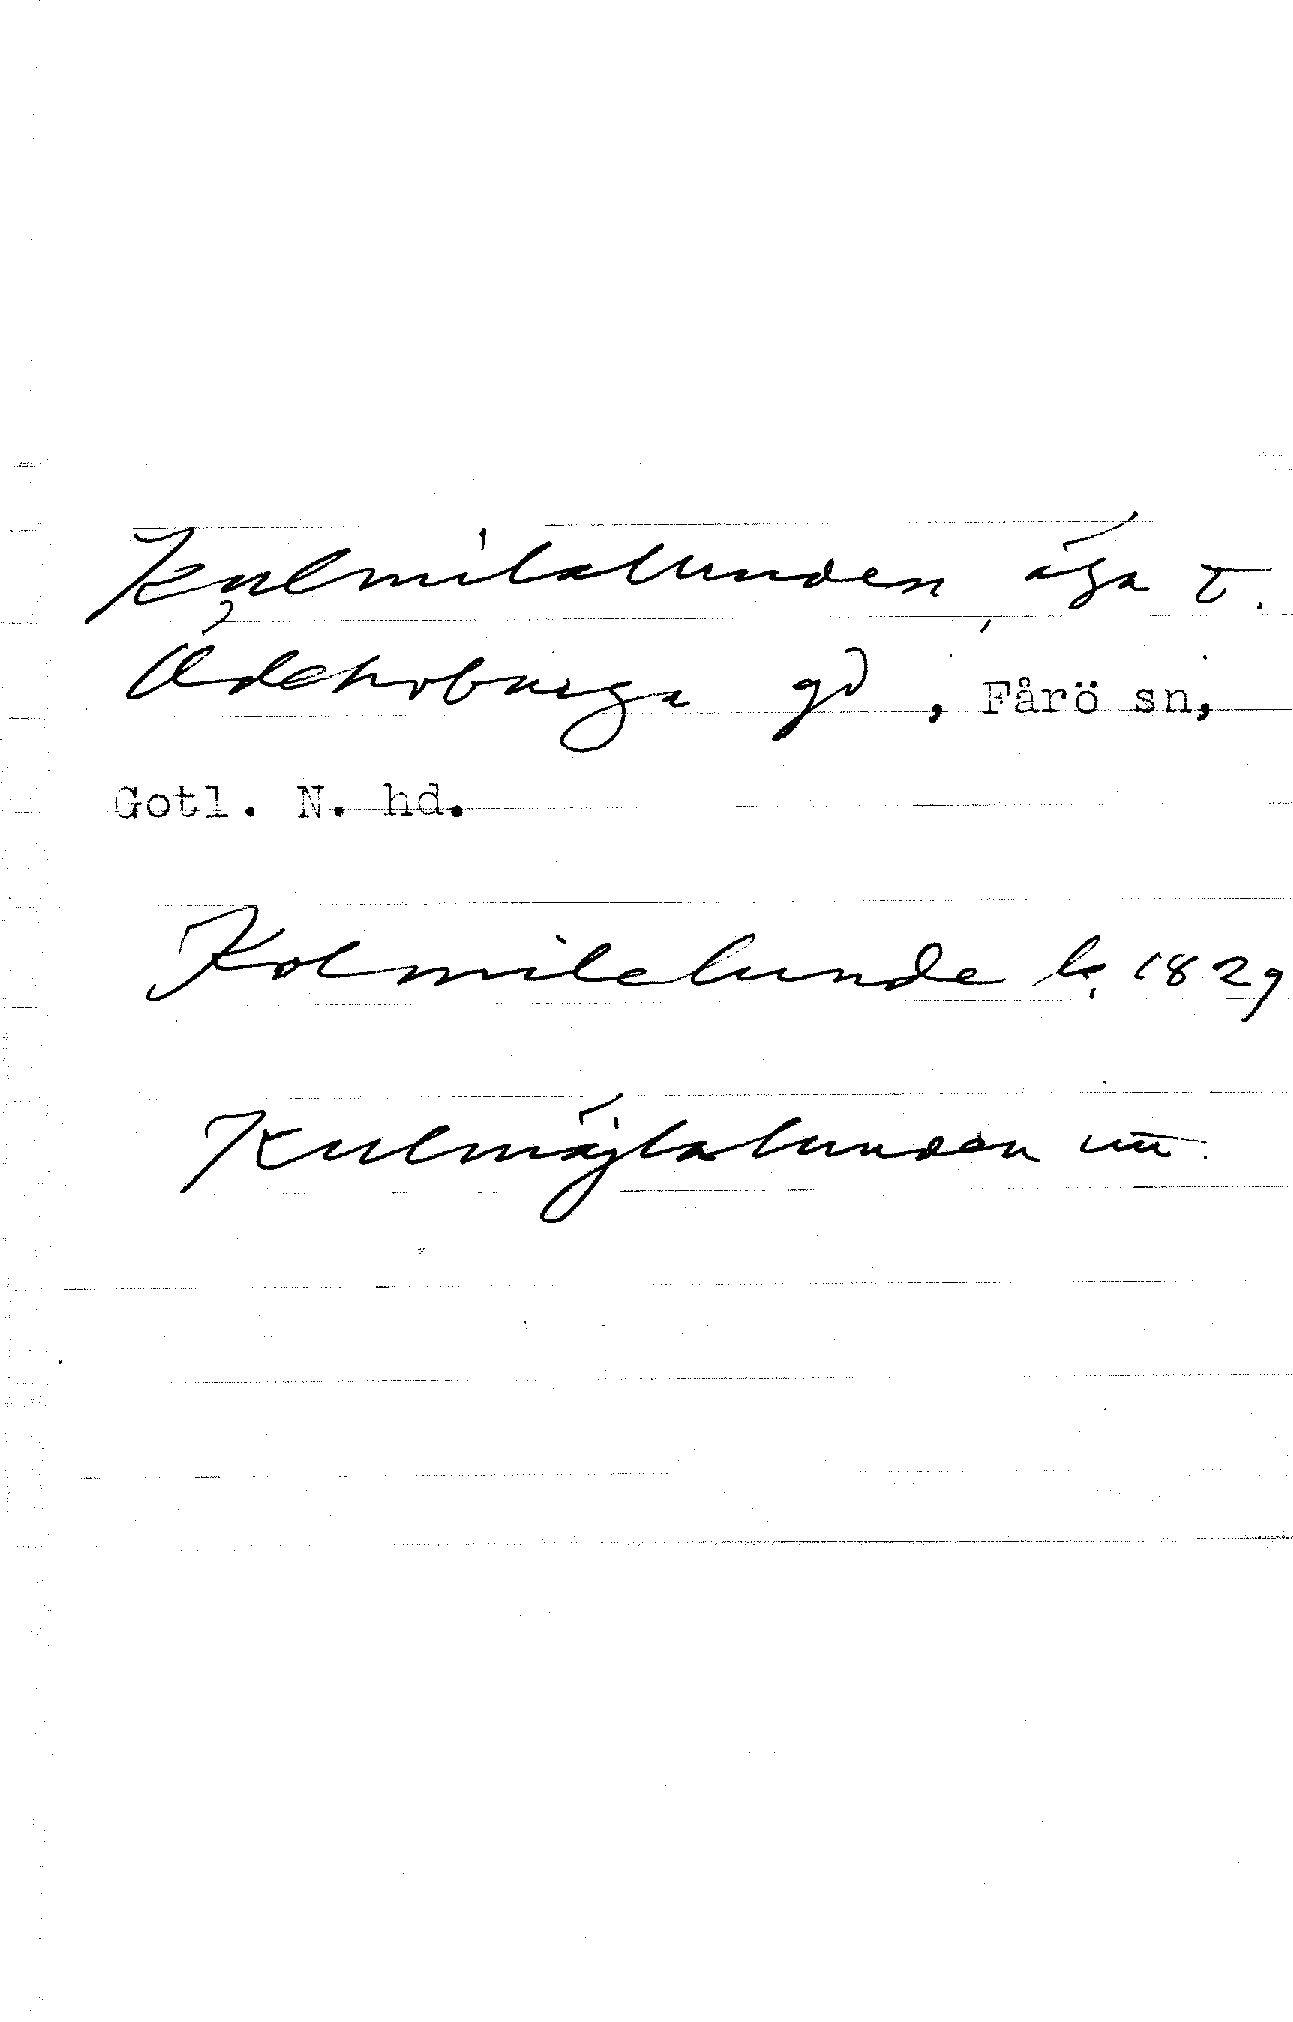 Kulmilalunden, äga t.
Ödehoburga gd, Fårö sn,
Gotl. N. hd.
Kolmilelunde lc, 1829
Kulmäjlalunden un.